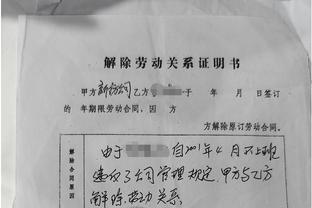 解除劳动关系证明书
甲方新纺公司乙方 于 年 月 日签订
的 年期限劳动合同，因 方
方解除原订劳动合同。
解除合同原因
由于 自2001年4月不上班
违反了公司管理规定，甲方与乙方
解除劳动关系